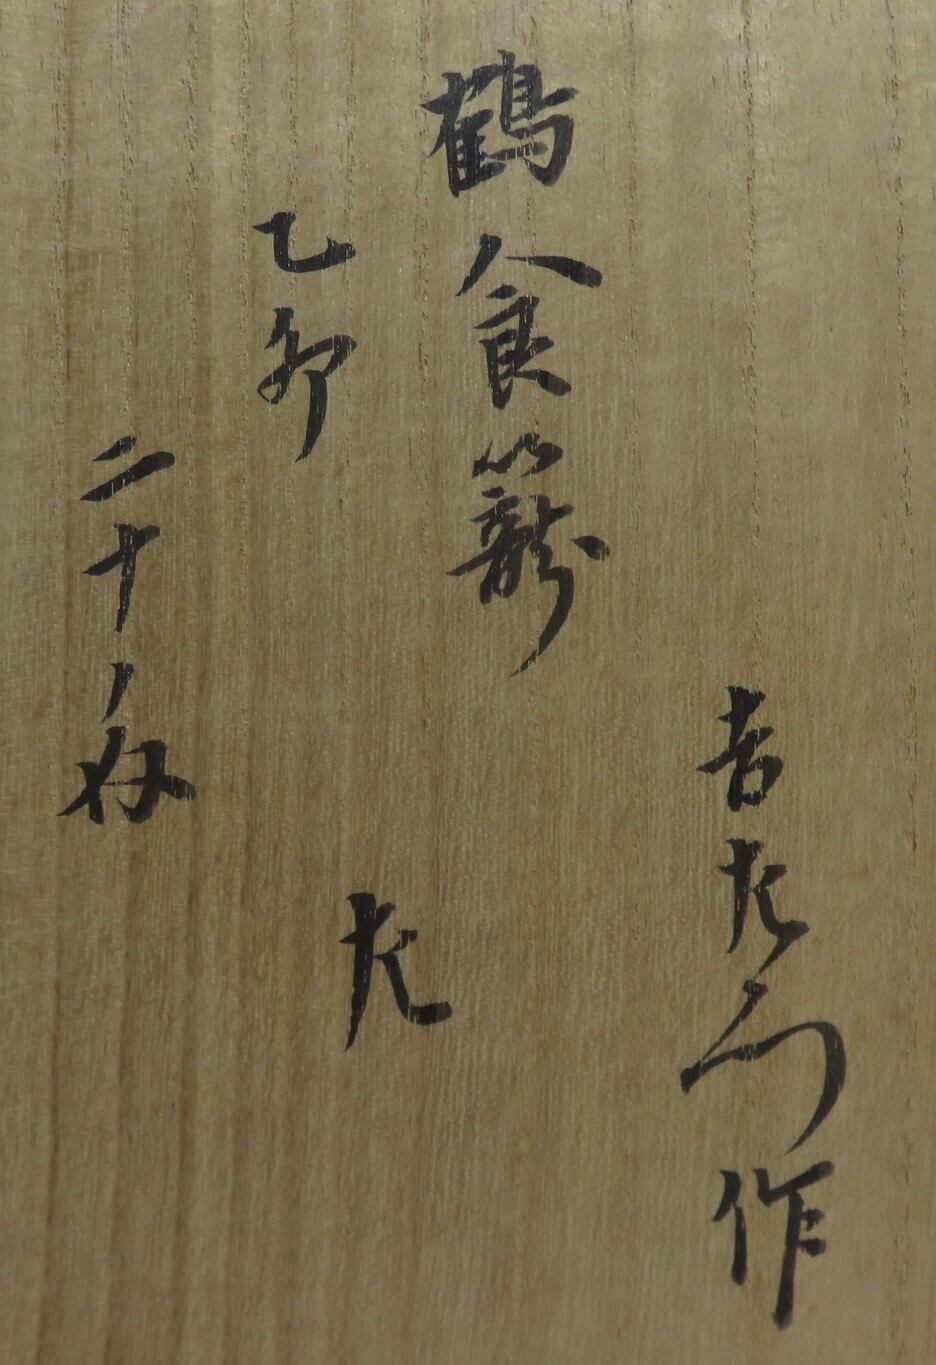 吉左衛門作
鶴食籠
左
乙卯
二十ノ内